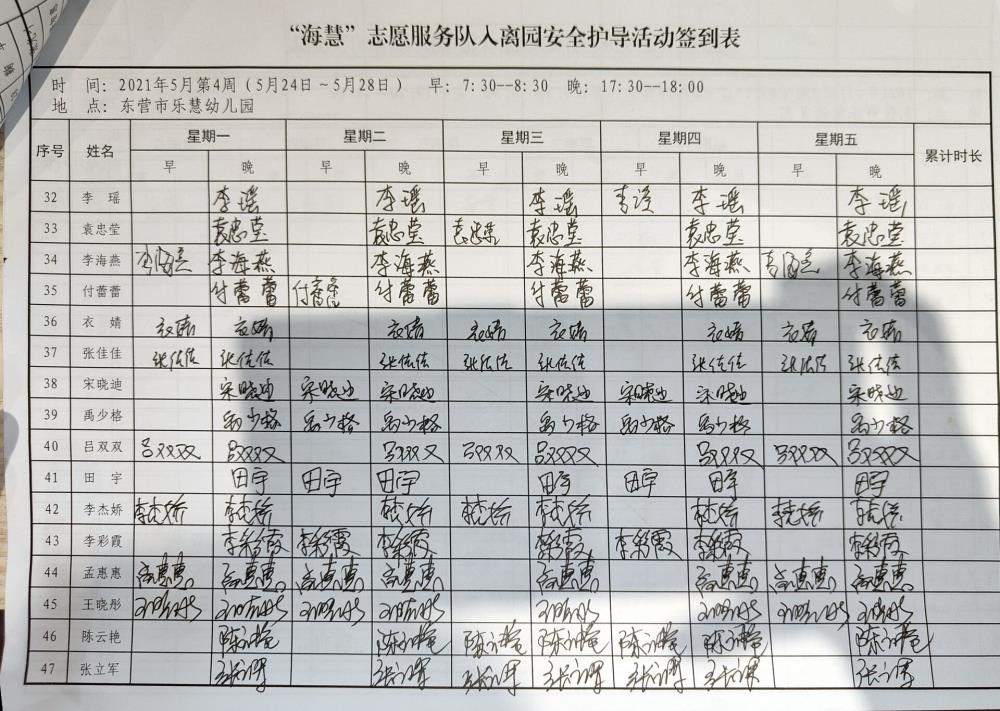 “海慧”志愿服务队入离园安全护导活动签到表
时 间：2021年5月第4周（5月24日～5月28日） 早：7:30--8:30 晚：17:30--18:00
地 点：东营市乐慧幼儿园
序号 姓名 星期一 星期二 星期三 星期四 星期五 累计时长
早 晚 早 晚 早 晚 早 晚 早 晚
32 李 瑶 李瑶 李瑶 李瑶 李瑶 李瑶
33 袁忠莹 袁忠莹 袁忠莹 袁忠莹 袁忠莹 袁忠莹 袁忠莹
34 李海燕 李海燕 李海燕 李海燕 李海燕 李海燕 李海燕 李海燕
35 付蕾蕾 付蕾蕾 付蕾蕾 付蕾蕾 付蕾蕾 付蕾蕾 付蕾蕾
36 衣 婧 衣婧 衣婧 衣婧 衣婧 衣婧 衣婧 衣婧 衣婧
37 张佳佳 张佳佳 张佳佳 张佳佳 张佳佳 张佳佳 张佳佳 张佳佳 张佳佳
38 宋晓迪 宋晓迪 宋晓迪 宋晓迪 宋晓迪 宋晓迪 宋晓迪 宋晓迪
39 禹少格 禹少格 禹少格 禹少格 禹少格 禹少格 禹少格 禹少格
40 吕双双 吕双双 吕双双 吕双双 吕双双 吕双双 吕双双 吕双双 吕双双
41 田 宇 田宇 田宇 田宇 田宇 田宇 田宇 田宇
42 李杰娇 李杰娇 李杰娇 李杰娇 李杰娇 李杰娇 李杰娇 李杰娇 李杰娇
43 李彩霞 李彩霞 李彩霞 李彩霞 李彩霞 李彩霞 李彩霞 李彩霞
44 孟惠惠 孟惠惠 孟惠惠 孟惠惠 孟惠惠 孟惠惠 孟惠惠 孟惠惠 孟惠惠
45 王晓彤 王晓彤 王晓彤 王晓彤 王晓彤 王晓彤 王晓彤 王晓彤 王晓彤
46 陈云艳 陈云艳 陈云艳 陈云艳 陈云艳 陈云艳 陈云艳 陈云艳
47 张立军 张立军 张立军 张立军 张立军 张立军 张立军 张立军